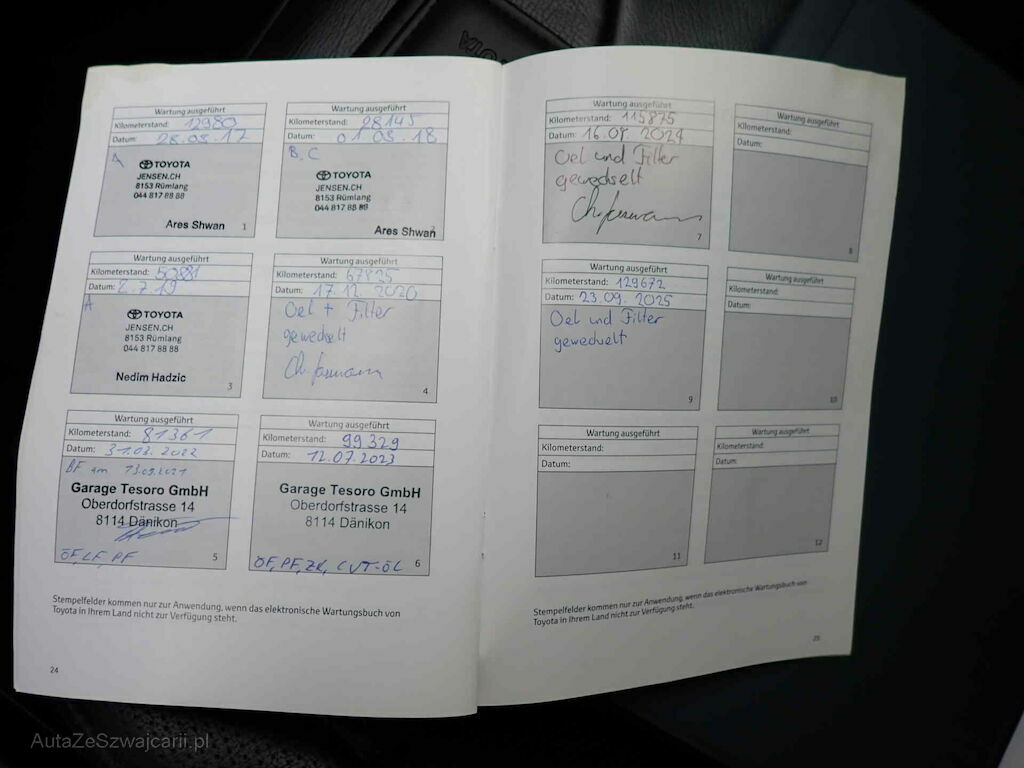 TOYOTA
Wartung ausgeführt
Kilometerstand: 12980
Datum: 28.03.17
A
TOYOTA
JENSEN.CH
8153 Rümlang
044 817 88 88
Ares Shwan
1
Wartung ausgeführt
Kilometerstand: 28145
Datum: 01.03.18
B, C
TOYOTA
JENSEN.CH
8153 Rümlang
044 817 88 88
Ares Shwan
Wartung ausgeführt
Kilometerstand:
Datum: 2.7.19
A
TOYOTA
JENSEN.CH
8153 Rümlang
044 817 88 88
Nedim Hadzic
3
Wartung ausgeführt
Kilometerstand: 67825
Datum: 17.12.2020
Oel + Filter
gewechselt
4
Wartung ausgeführt
Kilometerstand: 81361
Datum: 31.03.2022
BF am 13.09.2021
Garage Tesoro GmbH
Oberdorfstrasse 14
8114 Dänikon
ÖF, LF, PF
5
Wartung ausgeführt
Kilometerstand: 99329
Datum: 12.07.2023
Garage Tesoro GmbH
Oberdorfstrasse 14
8114 Dänikon
ÖF, PF, ZK, CVT-ÖL
6
Stempelfelder kommen nur zur Anwendung, wenn das elektronische Wartungsbuch von
Toyota in Ihrem Land nicht zur Verfügung steht.
24
Wartung ausgeführt
Kilometerstand: 115875
Datum: 16.08.2024
Oel und Filter
gewechselt
7
Wartung ausgeführt
Kilometerstand:
Datum:
8
Wartung ausgeführt
Kilometerstand: 129672
Datum: 23.09.2025
Oel und Filter
gewechselt
9
Wartung ausgeführt
Kilometerstand:
Datum:
10
Wartung ausgeführt
Kilometerstand:
Datum:
11
Wartung ausgeführt
Kilometerstand:
Datum:
12
Stempelfelder kommen nur zur Anwendung, wenn das elektronische Wartungsbuch von
Toyota in Ihrem Land nicht zur Verfügung steht.
25
AutaZeSzwajcarii.pl